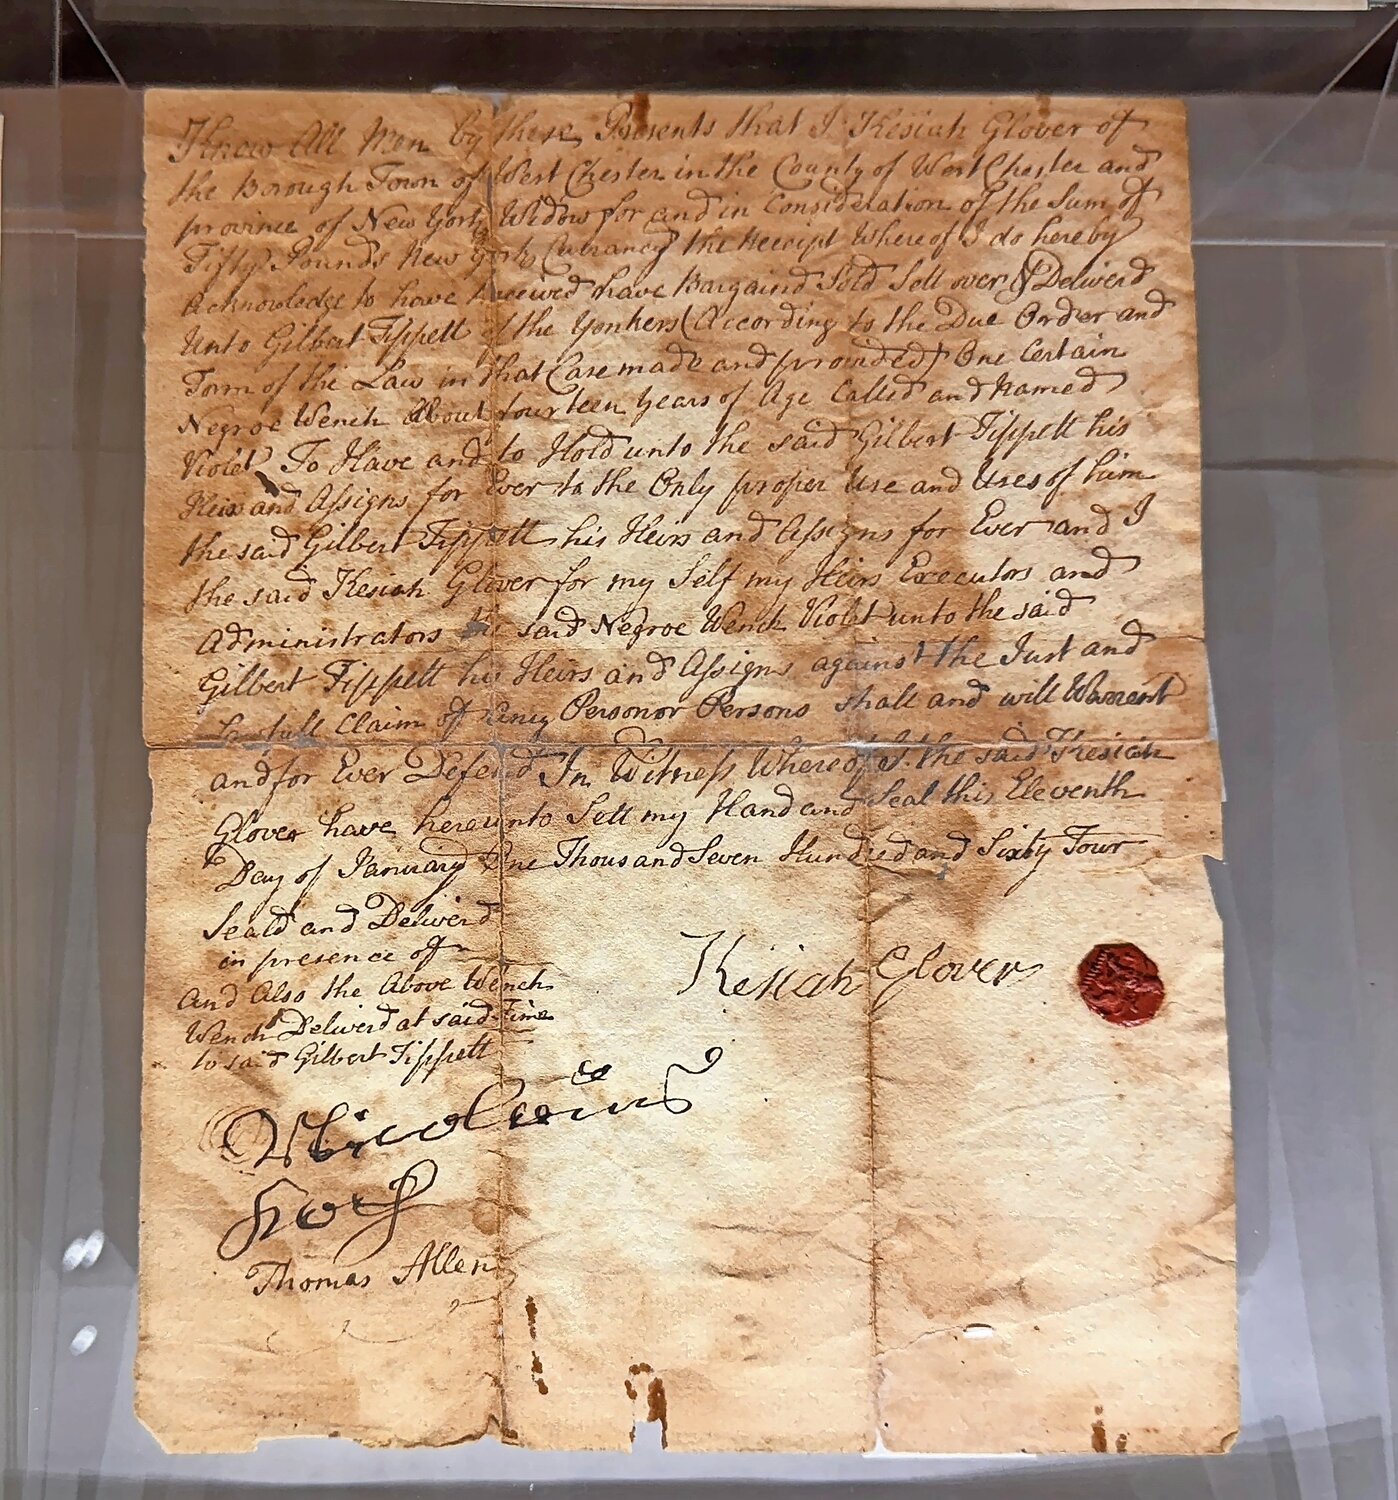 Know All Men by these Presents that I Kesiah Glover of
the Borough Town of West Chester in the County of West Chester and
province of New York Widow for and in Consideration of the Sum of
Fifty Pounds New York Currancy the Receipt Where of I do hereby
Acknowledge to have Received have Bargaind Sold Sett over & Deliverd
Unto Gilbert Tippett of the Yonkers (According to the Due Order and
Form of the Law in that Case made and provided) One Certain
Negroe Wench About fourteen years of Age Called and Named
Violet To Have and to Hold unto the said Gilbert Tippett his
Heirs and Assigns for Ever to the Only proper Use and Uses of him
the said Gilbert Tippett his Heirs and Assigns for Ever and I
the said Kesiah Glover for my Self my Heirs Executors and
Administrators the said Negroe Wench Violet unto the said
Gilbert Tippett his Heirs and Assigns against the Just and
Lawfull Claim of Any Person or Persons shall and will Warrent
and for Ever Defend In Witness Where of I the said Kesiah
Glover have hereunto Sett my Hand and Seal this Eleventh
Day of January One Thousand Seven Hundred and Sixty Four
Seald and Deliverd
in presence of
And Also the Above Wench
Wench Deliverd at said Time
to said Gilbert Tippett
Kesiah Glover
Thomas Allen